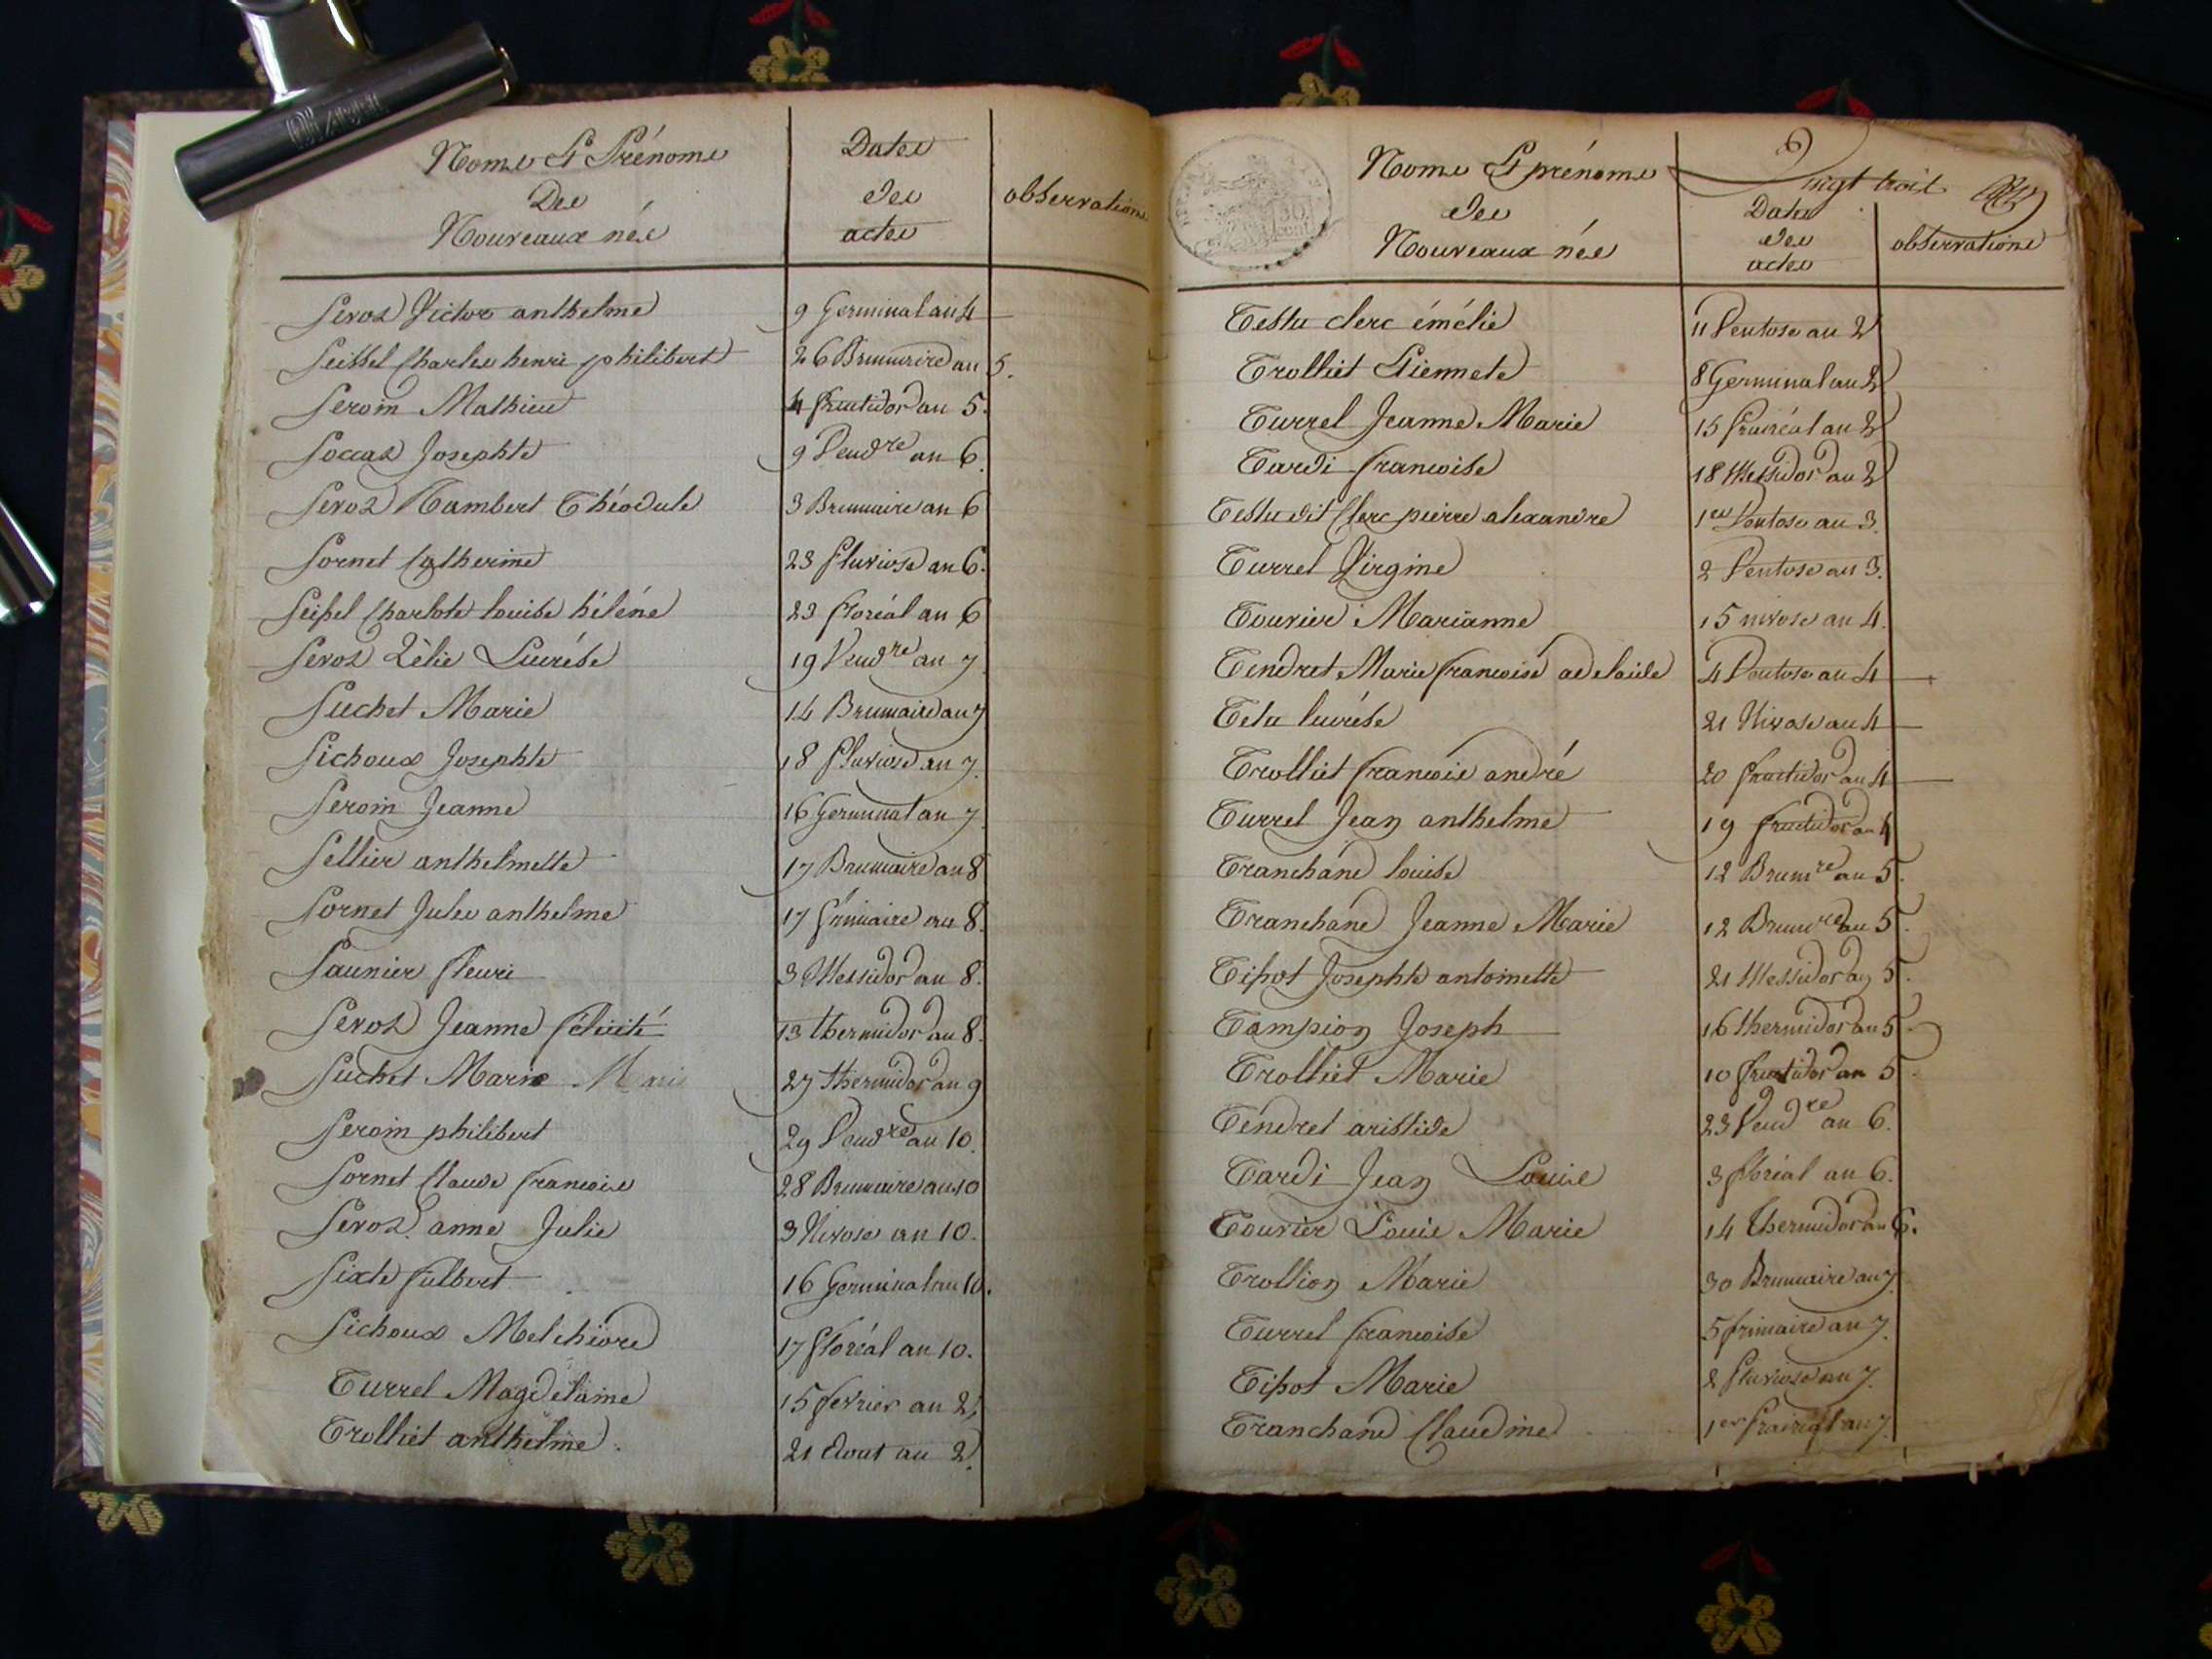 Noms Et Prénoms
Des
Nouveaux nés
Dates
des
actes
observations
Seroz Victor anthelme 9 Germinal an 4
Seissel Charles henri philibert 26 Brumaire an 5.
Seroin Mathieu 4 fructidor an 5.
Soccaz Josephte 9 Vend.re an 6.
Seroz Rambert Théodule 3 Brumaire an 6
Sornet Catherine 23 Pluviose an 6.
Seissel Charlote louise héléne 23 floréal an 6
Seroz Zélie Lucrése 19 Vend.re an 7.
Suchet Marie 14 Brumaire an 7
Sichoux Josephte 18 Pluviose an 7.
Seroin Jeanne 16 Germinal an 7.
Sellier anthelmette 17 Brumaire an 8
Sornet Jules anthelme 17 frimaire an 8.
Saunier fleuri 3 Messidor an 8.
Seroz Jeanne félicité 13 thermidor an 8.
Suchet Marie Marie 27 thermidor an 9
Seroin philibert 29 Vend.re an 10.
Sornet Claude francois 28 Brumaire an 10
Seroz anne Julie 3 Nivose an 10.
Sixte fulbert 16 Germinal an 10.
Sichoux Melchiore 17 floréal an 10.
Turrel Magdelaine 15 fevrier an 2,
Trolliet anthelme. 21 aout an 2.
Vingt trois
Noms Et prénoms
des
Nouveaux nés
Dates
des
actes
observations
Testu clerc émélie 11 Ventose an 2
Trolliet Etiennete 8 Germinal an 2
Turrel Jeanne Marie 15 prairéal an 2
Tardi francoise 18 Messidor an 2
Testu dit Clerc pierre alexandre 1er Ventose an 3.
Turrel Virgine 2 Ventose an 3.
Touvier Marianne 15 nivose an 4.
Tendret Marie francoise adelaide 4 Ventose an 4
Tetu lucrése 21 Nivose an 4
Trolliet francois andré 20 fructidor an 4
Turrel Jean anthelme 19 fructidor an 4
Tranchand louise 12 Brum.re an 5.
Tranchand Jeanne Marie 12 Brum.re an 5.
Tissot Josephte antoinette 21 Messidor an 5.
Tampion Joseph 16 thermidor an 5.
Trolliet Marie 10 fructidor an 5.
Téndret aristide 23 Vend.re an 6.
Tardi Jean Louis 3 floréal an 6.
Touvier Louis Marie 14 thermidor an 6.
Trollion Marie 30 Brumaire an 7.
Turrel francoise 5 frimaire an 7.
Tissot Marie 2 Pluviose an 7.
Tranchand Claudine 1er prairial an 7.